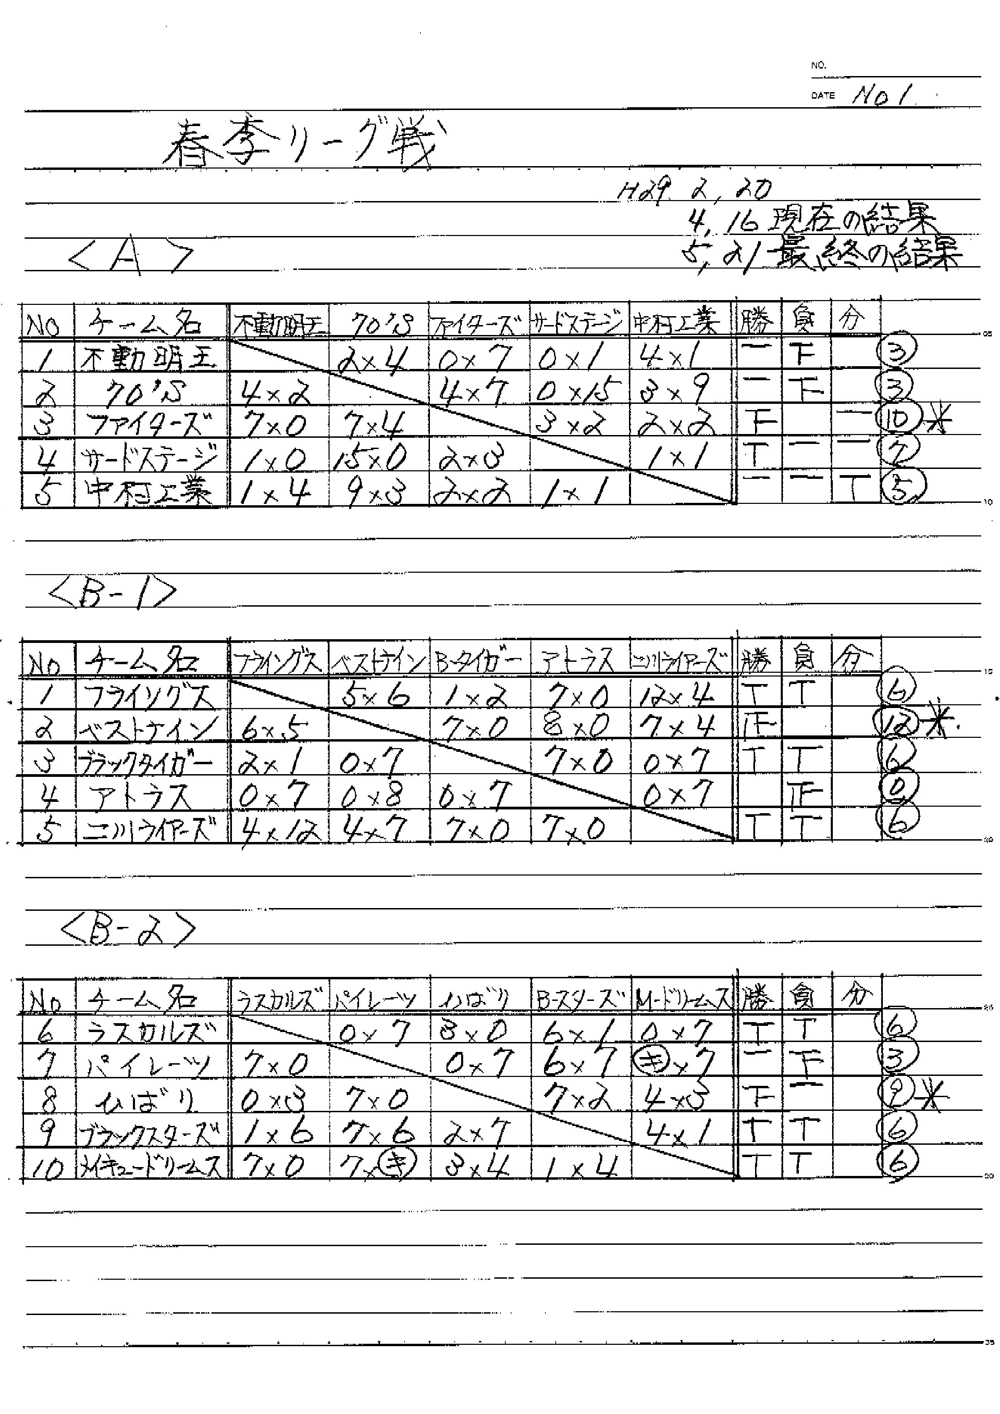 NO.
DATE No 1.
春季リーグ戦
H29. 2, 20
4, 16 現在の結果
5, 21 最終の結果
<A>
NO チーム名 不動明王 70'S ファイターズ サードステージ 中村工業 勝 負 分
1 不動明王 2×4 0×7 0×1 4×1 一 下 ③
2 70'S 4×2 4×7 0×15 3×9 一 下 ③
3 ファイターズ 7×0 7×4 3×2 2×2 下 一 ⑩ *
4 サードステージ 1×0 15×0 2×3 1×1 T 一 一 ⑦
5 中村工業 1×4 9×3 2×2 1×1 一 一 T ⑤
<B-1>
No チーム名 フライングス ベストナイン B-タイガー アトラス 二川ライアーズ 勝 負 分
1 フライングス 5×6 1×2 7×0 12×4 T T ⑥
2 ベストナイン 6×5 7×0 8×0 7×4 正 ⑫ *
3 ブラックタイガー 2×1 0×7 7×0 0×7 T T ⑥
4 アトラス 0×7 0×8 0×7 0×7 正 ⓪
5 二川ライアーズ 4×12 4×7 7×0 7×0 T T ⑥
<B-2>
No チーム名 ラスカルズ パイレーツ ひばり B-スターズ M-ドリームス 勝 負 分
6 ラスカルズ 0×7 3×0 6×1 0×7 T T ⑥
7 パイレーツ 7×0 0×7 6×7 ㋖×7 一 下 ③
8 ひばり 0×3 7×0 7×2 4×3 下 一 ⑨ *
9 ブラックスターズ 1×6 7×6 2×7 4×1 T T ⑥
10 メイキュードリームス 7×0 7×㋖ 3×4 1×4 T T ⑥